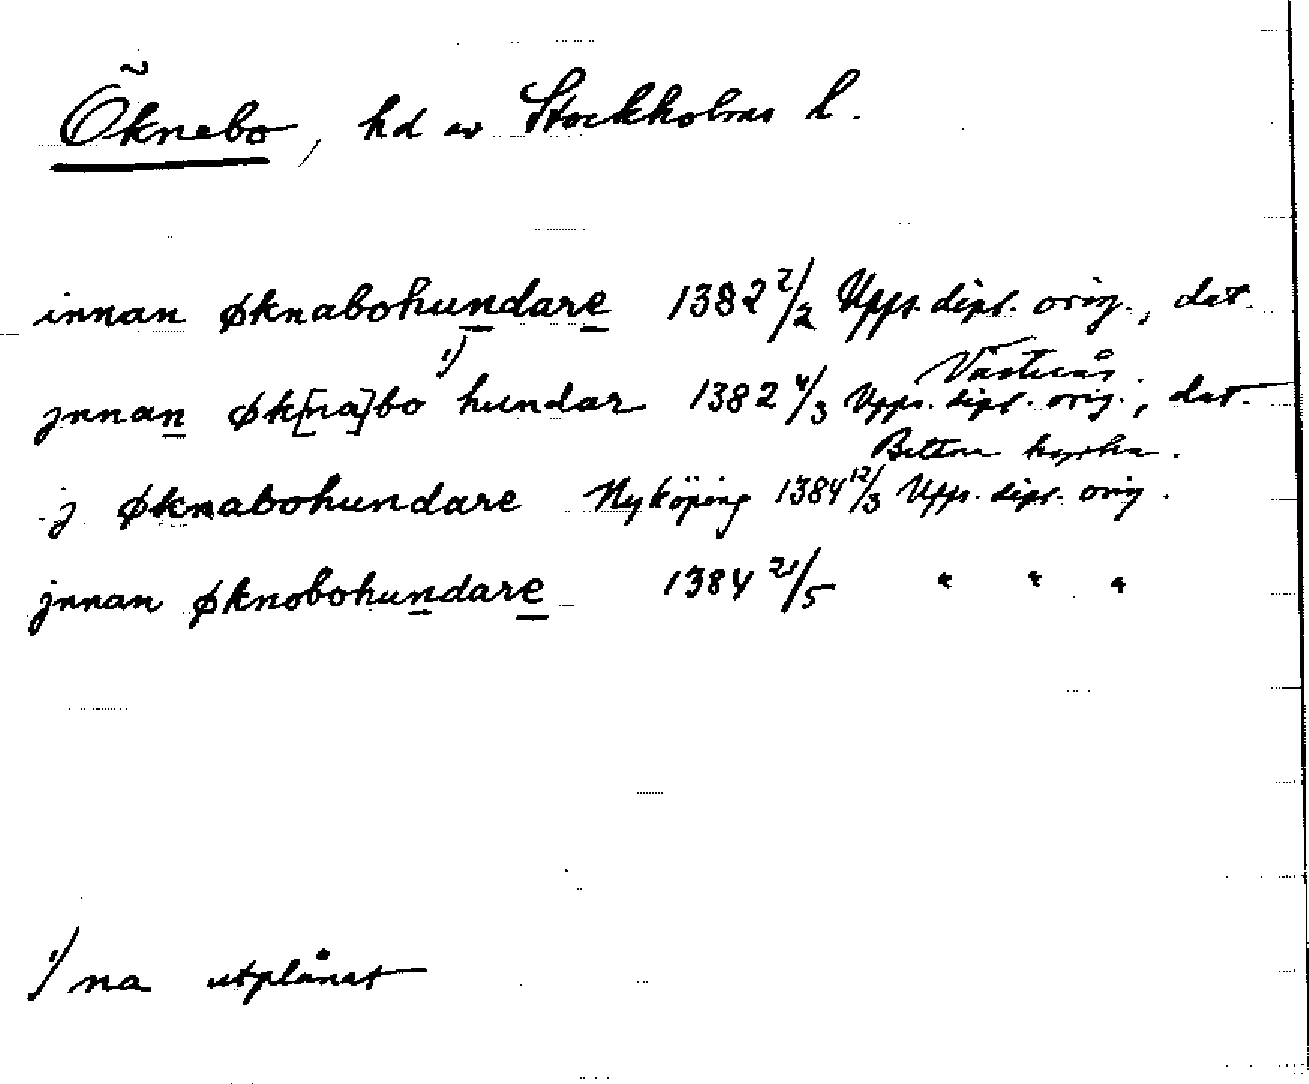 Öknebo, hd av Stockholms l.
innan øknabohundare 1382 2/2 Upps. dipl. orig., dat.
Västerås.
jnnan øk[na]bo 1) hundar 1382 4/3 Upps. dipl. orig., dat.
kyrka.
j øknabohundare Nyköping 1384 12/3 Upps. dipl. orig.
jnnan øknobohundare 1384 21/5 " " "
1) na utplånat